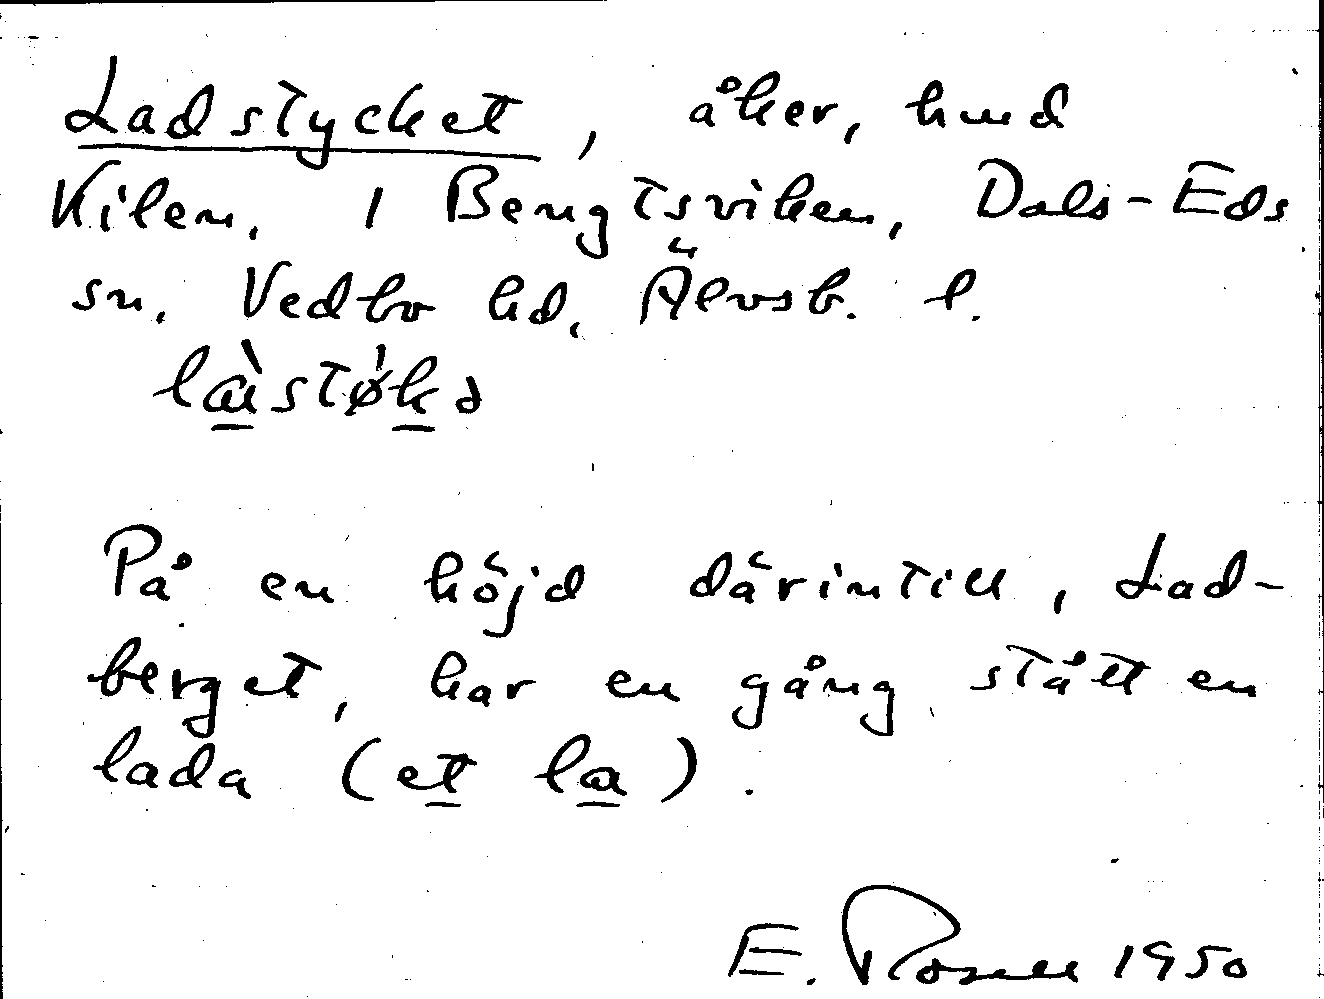 Ladstycket, åker, hmd
Kilen, 1 Bengtsviken, Dals-Eds
sn, Vedbo hd, Älvsb. l.
På en höjd därintill, Lad-
berget, har en gång stått en
lada (et la).
E. Rosell 1950